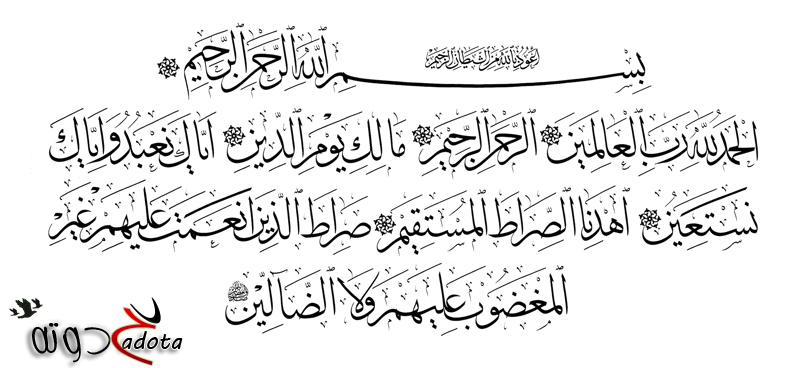 أعوذ بالله من الشيطان الرجيم
بسم الله الرحمن الرحيم
الحمد لله رب العالمين الرحمن الرحيم مالك يوم الدين اياك نعبد واياك
نستعين اهدنا الصراط المستقيم صراط الذين انعمت عليهم غير
المغضوب عليهم ولا الضآلين
adota